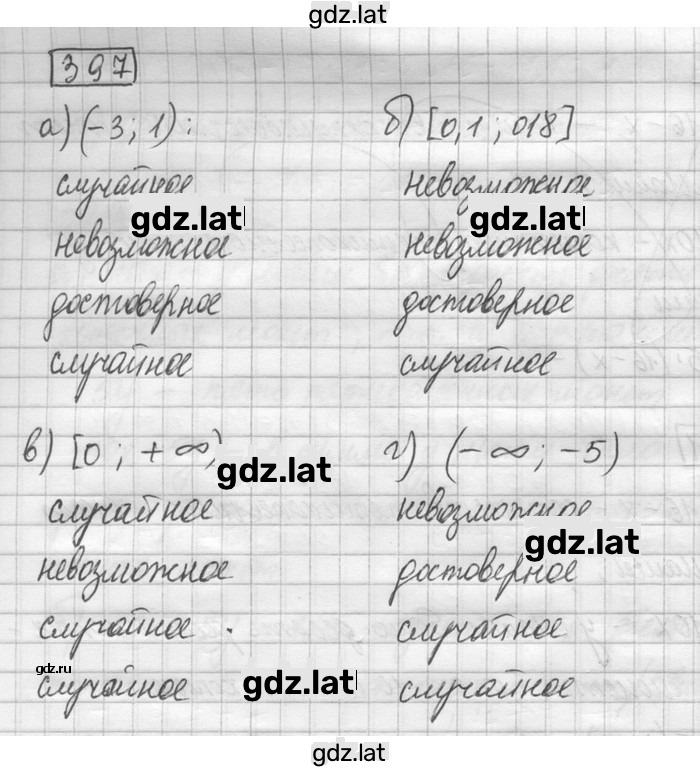 gdz.lat
397
а) (-3; 1):
случайное
gdz.lat
невозможное
достоверное
случайное
б) [0,1; 018]
невозможное
gdz.lat
невозможное
достоверное
случайное
в) [0; +∞)
gdz.lat
случайное
невозможное
случайное.
gdz.ru
случайное
gdz.lat
г) (-∞; -5)
невозможное
gdz.lat
достоверное
случайное
случайное
gdz.lat